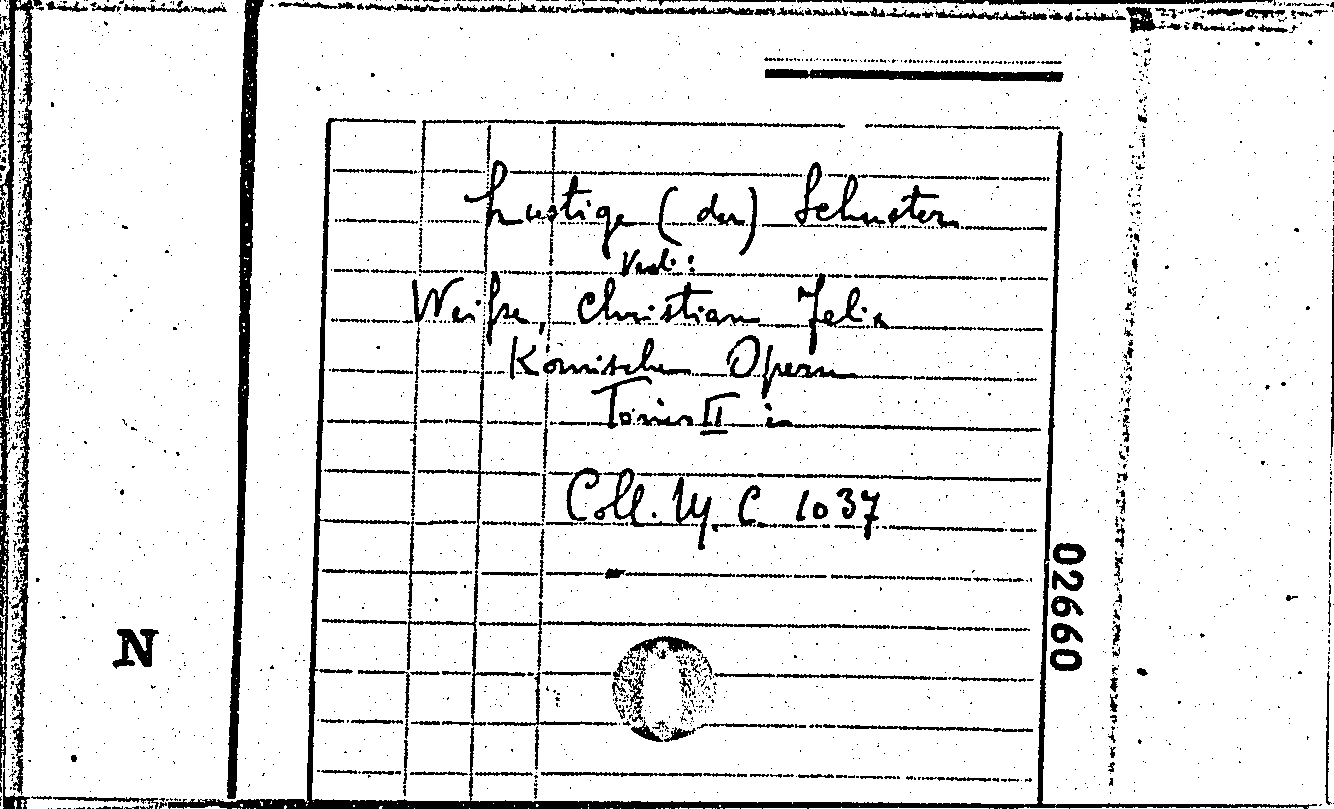 Lustige (der) Schuster
Vedi:
Weiße, Christian Felix
Komische Opern
Tomus II in
Coll. M. C. 1037
02660
N